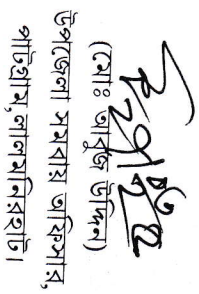 (মোঃ উদ্দিন)
উপজেলা সমবায় অফিসার,
পাটগ্রাম, লালমনিরহাট।